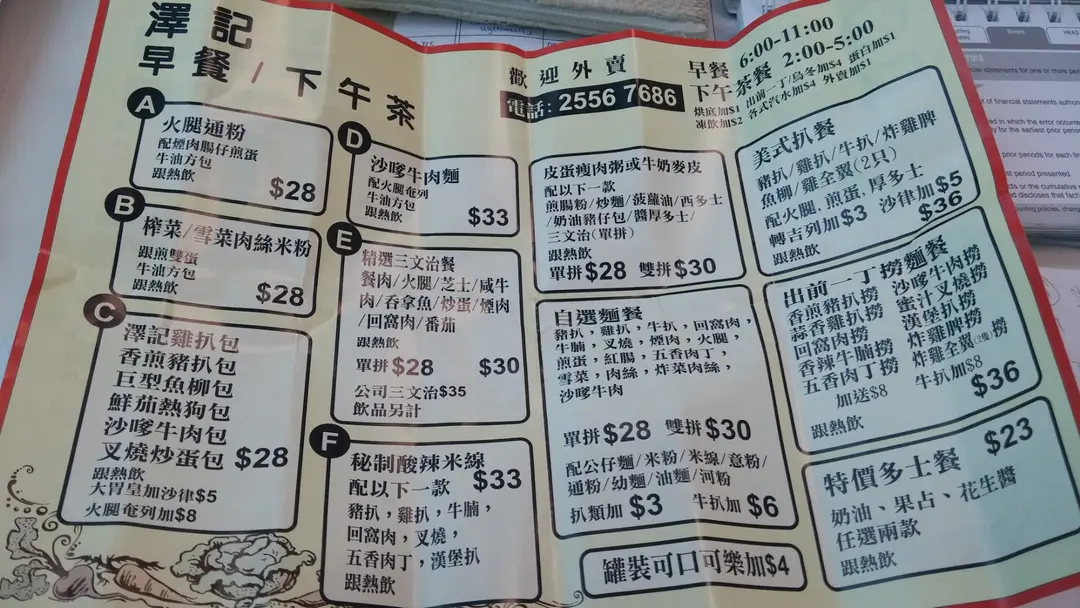 澤記
早餐/下午茶
歡迎外賣
電話: 2556 7686
早餐 6:00-11:00
下午茶餐 2:00-5:00
烘底加$1 出前一丁/烏冬加$4 蛋白加$1
凍飲加$2 各式汽水加$4 外賣加$1
A
火腿通粉
配煙肉腸仔煎蛋
牛油方包
跟熱飲
$28
B
榨菜/雪菜肉絲米粉
跟煎雙蛋
牛油方包
跟熱飲
$28
C
澤記雞扒包
香煎豬扒包
巨型魚柳包
鮮茄熱狗包
沙嗲牛肉包
叉燒炒蛋包 $28
跟熱飲
大胃皇加沙律$5
火腿奄列加$8
D
沙嗲牛肉麵
配火腿奄列
牛油方包
跟熱飲
$33
E
精選三文治餐
餐肉/火腿/芝士/咸牛
肉/吞拿魚/炒蛋/煙肉
/回窩肉/番茄
跟熱飲
單拼$28 $30
公司三文治$35
飲品另計
F
秘制酸辣米線
配以下一款 $33
豬扒,雞扒,牛腩,
回窩肉,叉燒,
五香肉丁,漢堡扒
跟熱飲
皮蛋瘦肉粥或牛奶麥皮
配以下一款
煎腸粉/炒麵/菠蘿油/西多士
/奶油豬仔包/醬厚多士/
三文治(單拼)
跟熱飲
單拼$28 雙拼$30
自選麵餐
豬扒,雞扒,牛扒,回窩肉,
牛腩,叉燒,煙肉,火腿,
煎蛋,紅腸,五香肉丁,
雪菜,肉絲,炸菜肉絲,
沙嗲牛肉
單拼$28 雙拼$30
配公仔麵/米粉/米線/意粉/
通粉/幼麵/油麵/河粉
扒類加$3 牛扒加$6
罐裝可口可樂加$4
美式扒餐
豬扒/雞扒/牛扒/炸雞脾
魚柳/雞全翼(2只)
配火腿,煎蛋,厚多士
轉吉列加$3 沙律加$5
跟熱飲 $36
出前一丁撈麵餐
香煎豬扒撈 沙嗲牛肉撈
蒜香雞扒撈 蜜汁叉燒撈
回窩肉撈 漢堡扒撈
香辣牛腩撈 炸雞脾撈
五香肉丁撈 炸雞全翼(2隻)撈
加送$8 牛扒加$8
跟熱飲 $36
特價多士餐 $23
奶油、果占、花生醬
任選兩款
跟熱飲